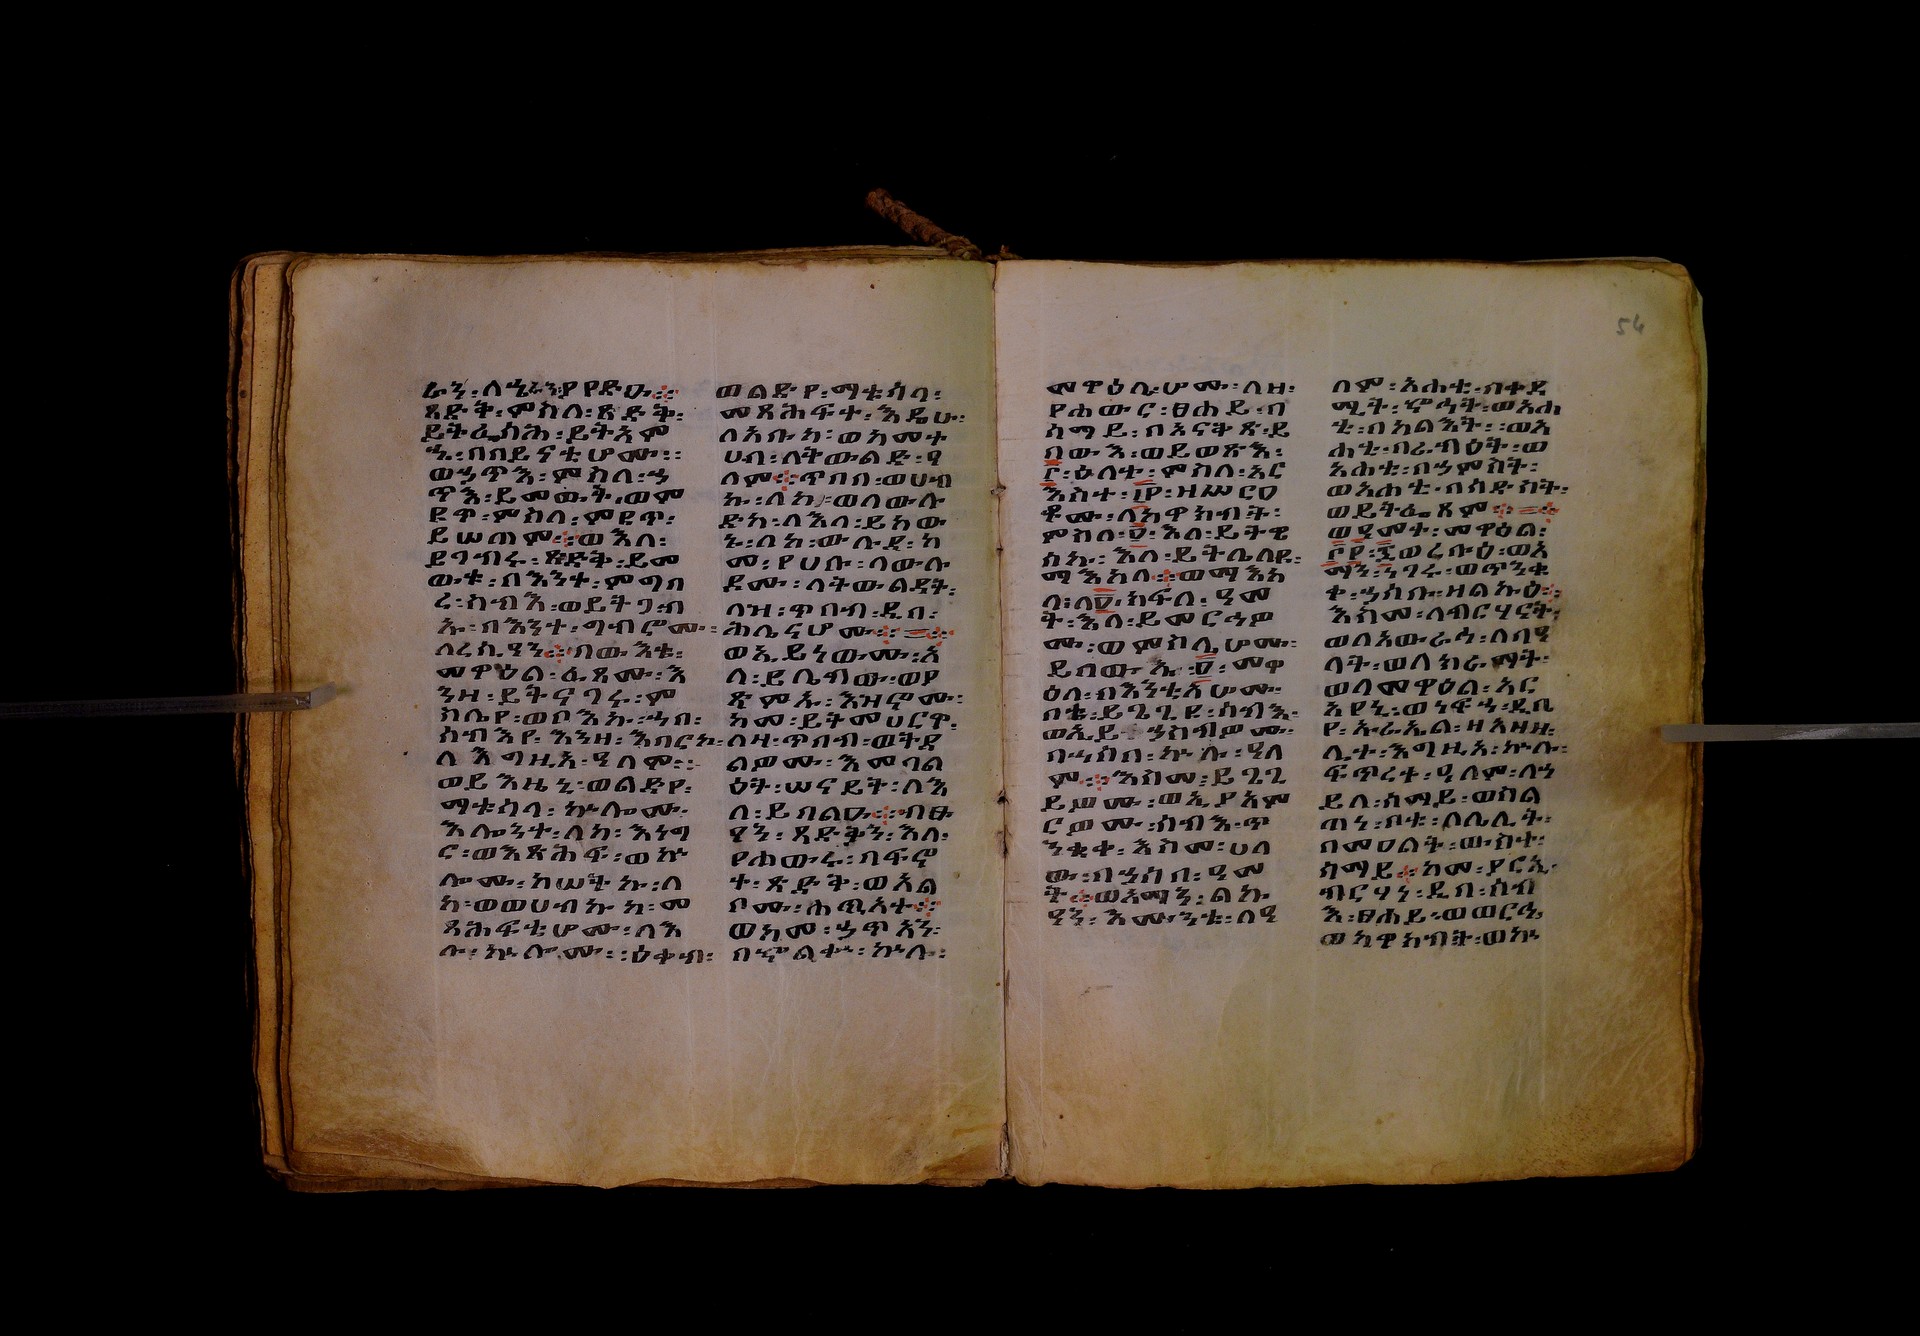 ራን፡ ለኄራን፡ ያየድዑ።
ጻድቅ፡ ምስለ፡ ጻድቅ፡
ይትፌሣሕ፡ ይትአም
ኁ፡ በበይናቲሆሙ።
ወኃጥእ፡ ምስለ፡ ኃ
ጥእ፡ ይመውት፡ ወም
ዩጥ፡ ምስለ፡ ምዩጥ፡
ይሠጠም፨ ወእለ፡
ይገብሩ፡ ጽድቅ፡ ይመ
ውቱ፡ በእንተ፡ ምግባ
ረ፡ ሰብእ፡ ወይትጋብ
ኡ፡ በእንተ፡ ግብሮሙ፡
ለረሲዓን፨ በውእቱ፡
መዋዕል፡ ፈጸሙ፡ እ
ንዘ፡ ይትናገሩ፡ ም
ስሌየ፡ ወቦእኩ፡ ኀበ፡
ሰብእየ፡ እንዘ፡ እባርኮ፡
ለእግዚአ፡ ዓለም።
ወይእዜኒ፡ ወልድየ፡
ማቱሳላ፡ ኵሎሙ፡
እሎንተ፡ ለከ፡ እነግ
ር፡ ወእጽሕፍ፡ ወኵ
ሎሙ፡ ከሠትኩ፡ ለ
ከ፡ ወወሀብኩከ፡ መ
ጻሕፍቲሆሙ፡ ለእ
ሉ፡ ኵሎሙ። ዕቀብ፡
ወልድየ፡ ማቱሳላ፡
መጻሕፍተ፡ እዴሁ፡
ለአቡከ፡ ወከመ፡ ተ
ሀብ፡ ለትውልደ፡ ዓ
ለም፨ ጥበበ፡ ወሀብ
ኩ፡ ለከ፡ ወለውሉ
ድከ፡ ለእለ፡ ይከው
ኑ፡ ለከ፡ ውሉደ፡ ከ
መ፡ የሀቡ፡ ለውሉ
ዶሙ፡ ለትውልዳት፡
ለዛ፡ ጥበብ፡ ዲበ፡
ሕሊናሆሙ፨
ወኢይነውሙ፡ እ
ለ፡ ይሌብው፡ ወያ
ጸምኡ፡ እዝኖሙ፡
ከመ፡ ይትመሀርዋ፡
ለዛ፡ ጥበብ፡ ወትደ
ልዎሙ፡ እመባል
ዕት፡ ሠናይት፡ ለእ
ለ፡ ይበልዑ፨ ብፁ
ዓን፡ ጻድቃን፡ እለ፡
የሐውሩ፡ በፍኖ
ተ፡ ጽድቅ፡ ወአል
ቦሙ፡ ኃጢአተ፨
ወከመ፡ ኃጥአን፡
በኆልቈ፡ ኵሉ፡
መዋዕሊሆሙ፡ ለዘ፡
የሐውር፡ ፀሐይ፡ በ
ሰማይ፡ በአናቅጽ፡ ይ
በውእ፡ ወይወጽእ፡
፴፡ ዕለተ፡ ምስለ፡ አር
እስተ፡ ፲፻፡ ዘሥርዐ
ቶሙ፡ ለከዋክብት፡
ምስለ፡ ፬፡ እለ፡ ይትዌ
ሰኩ፡ እለ፡ ይሌልዩ፡
ማእከለ፨ ወማእከ
ለ፡ ለ፬፡ ክፍለ፡ ዓመ
ት፡ እለ፡ ይመርሕዎ
ሙ፡ ወምስሌሆሙ፡
ይበውኡ፡ ፬፡ መዋ
ዕለ፡ በእንቲአሆሙ፡
ቦቱ፡ ይጌጊዩ፡ ሰብእ፡
ወኢይኃስብዎሙ፡
በሐሳበ፡ ኵሉ፡ ዓለ
ም፨ እስመ፡ ይጌጊ
ይዎሙ፡ ወኢያአም
ርዎሙ፡ ሰብእ፡ ጥ
ንቁቀ፡ እስመ፡ ሀለ
ው፡ በሐሳበ፡ ዓመ
ት፨ ወአማን፡ ልኩ
ዓን፡ እሙንቱ፡ ለዓ
ለም፡ አሐቲ፡ በቀዳ
ሚት፡ ኆኅት፡ ወአሐ
ቲ፡ በሣልስት፡ ወአ
ሐቲ፡ በራብዕት፡ ወ
አሐቲ፡ በኃምስት፡
ወአሐቲ፡ በሳድስት፡
ወይትፌጸም፨
ወዓመት፡ መዋዕል፡
፫፻፡ ፷ወረቡዕ፡ ወአ
ማን፡ ነገሩ፡ ወጥንቁ
ቀ፡ ሐሳቡ፡ ዘልኩዕ፨
እስመ፡ ለብርሃናት፡
ወለአውራኅ፡ ለበዓ
ላት፡ ወለክራማት፡
ወለመዋዕል፡ አር
አየኒ፡ ወነፍኃ፡ ዲቤ
የ፡ ኡራኤል፡ ዘአዘዘ፡
ሊተ፡ እግዚአ፡ ኵሉ፡
ፍጥረተ፡ ዓለም፡ በኀ
ይለ፡ ሰማይ፡ ወሥል
ጣነ፡ ቦቱ፡ በሌሊት፡
በመዐልት፡ ውስተ፡
ሰማይ፨ ከመ፡ ያርኢ፡
ብርሃነ፡ ዲበ፡ ሰብ
እ፡ ፀሐይ፡ ወወርኀ፡
ወከዋክብት፡ ወኵ